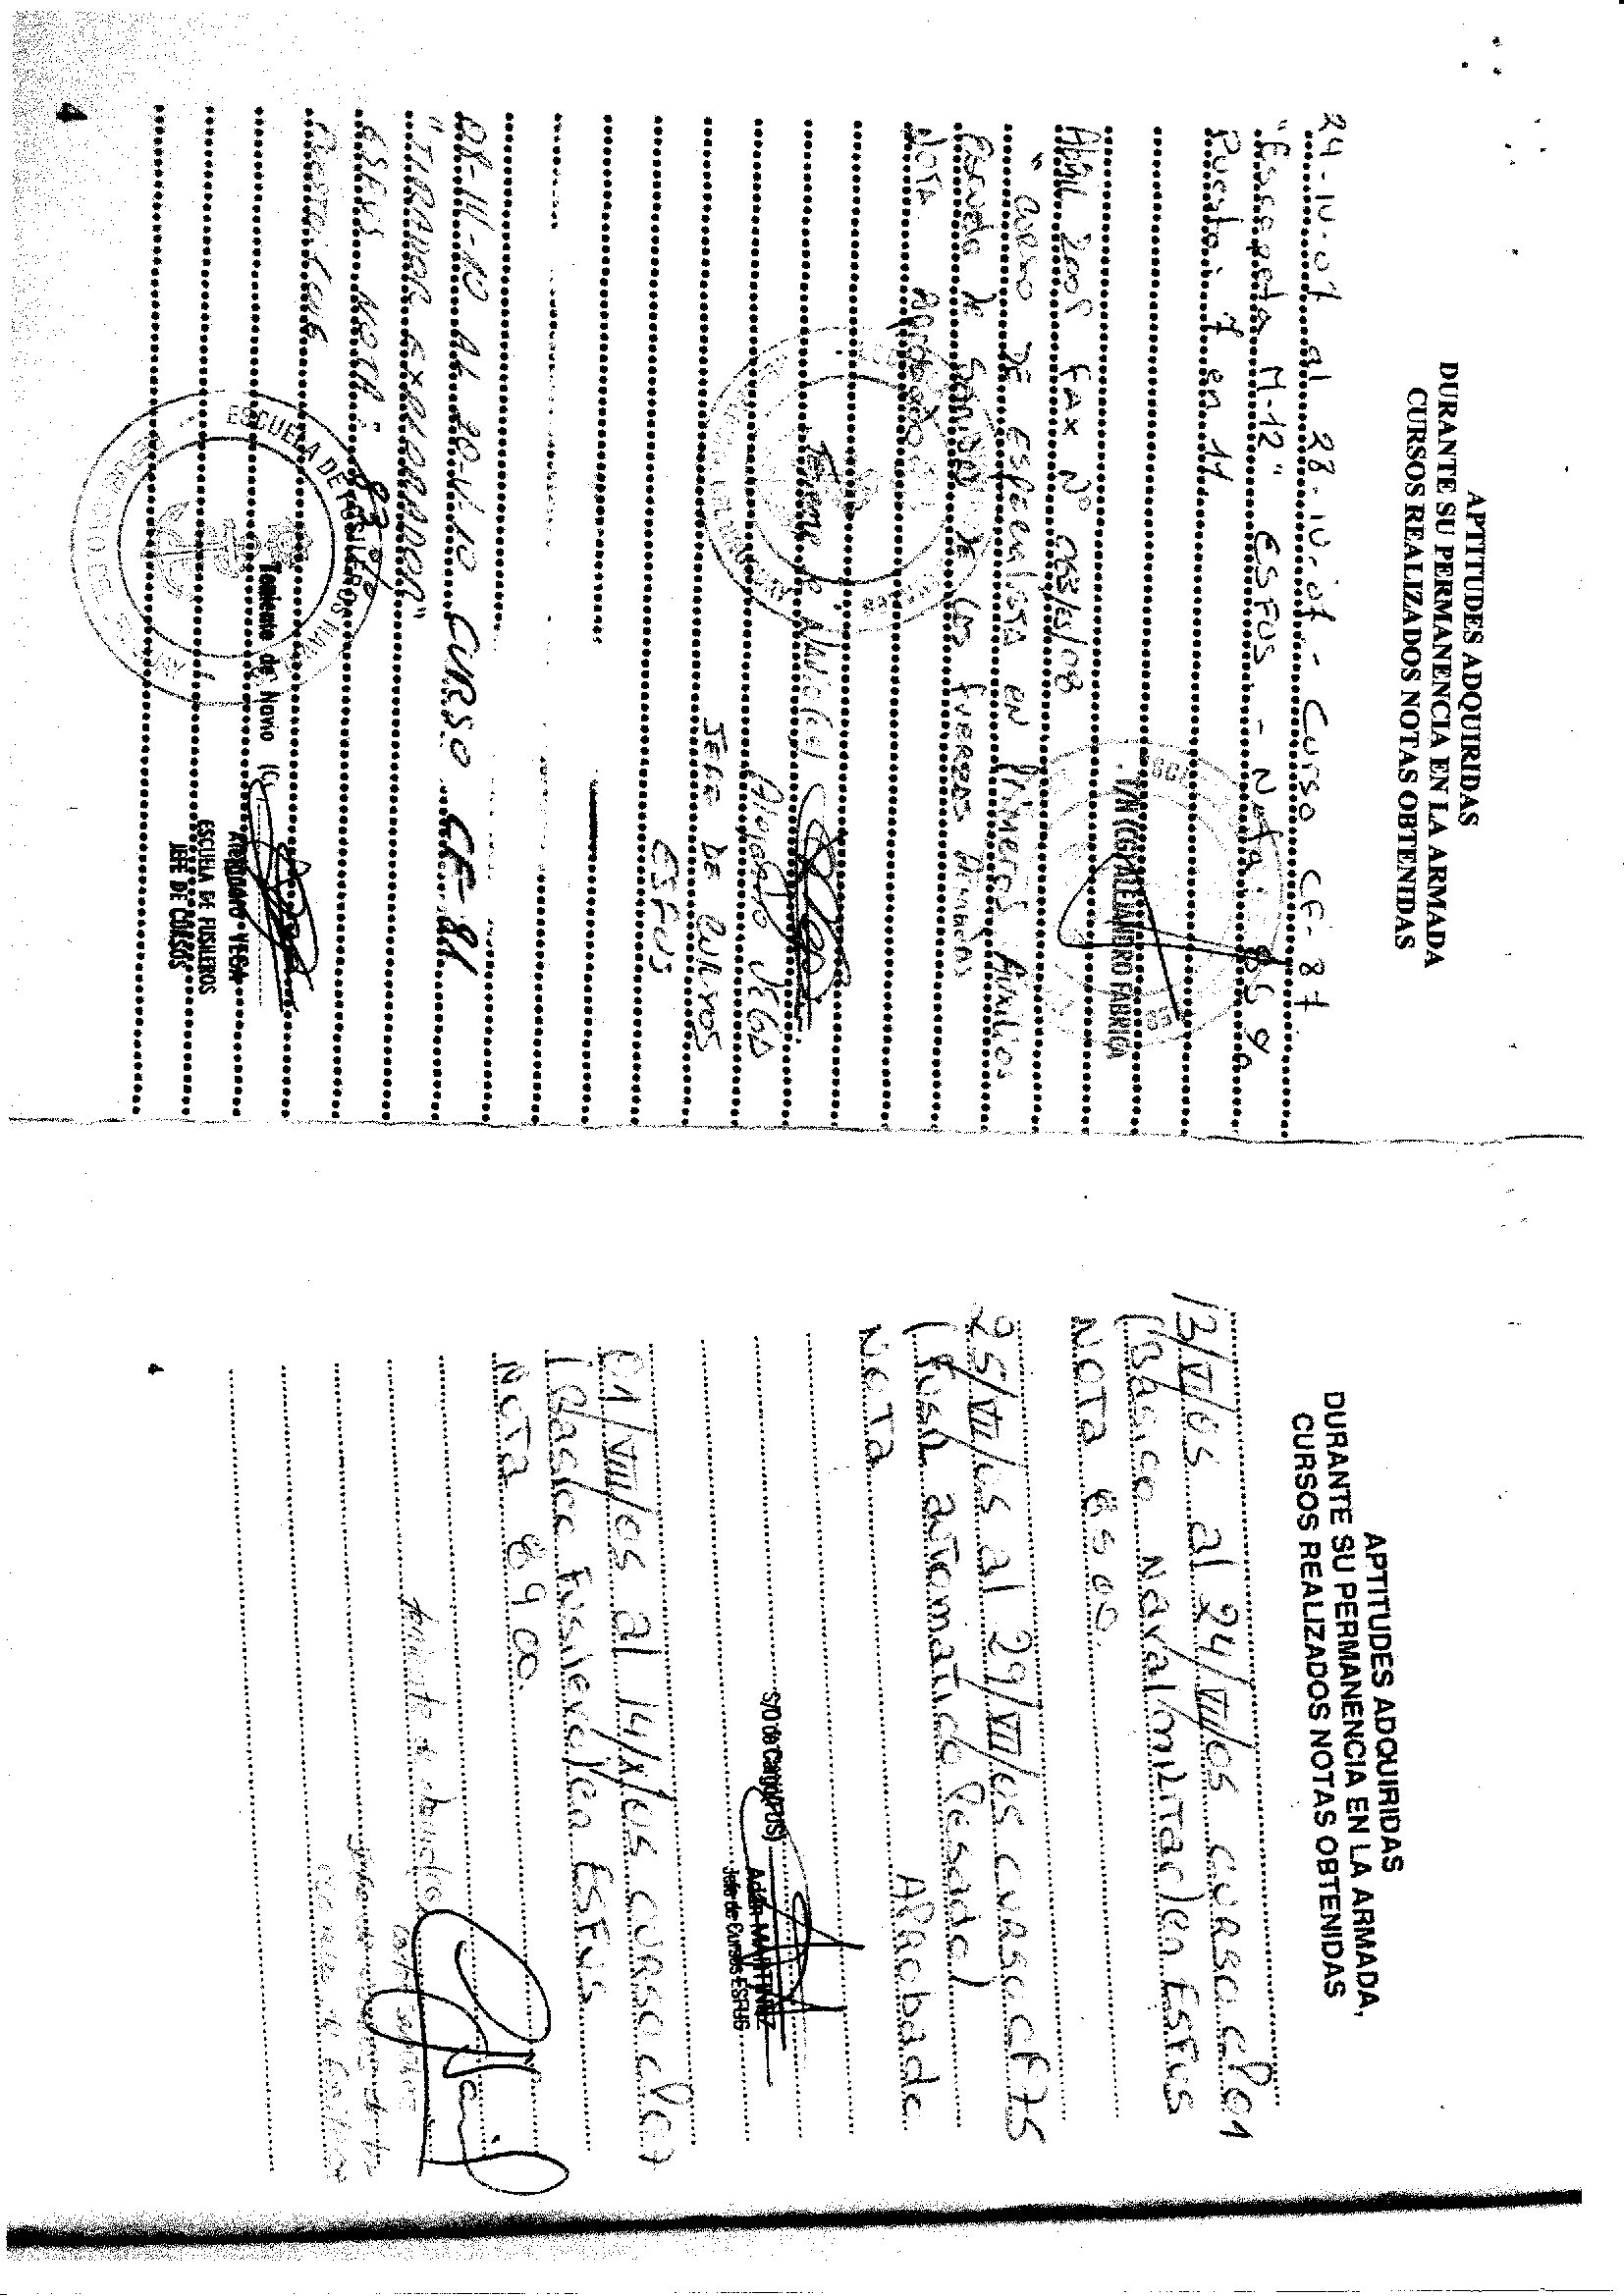 APTITUDES ADQUIRIDAS
DURANTE SU PERMANENCIA EN LA ARMADA
CURSOS REALIZADOS NOTAS OBTENIDAS
24-IV-07 al 28-IV-07 - Curso CF-87
"Escopeta M-12" ESFUS - Nota:
Puesto: 7 en 11.
T/N (CG) ALEJANDRO FABRICA
ABRIL 2008 FAX Nº
"Curso DE Especialista en Primeros Auxilios
Escuela de Sanidad de las Fuerzas Armadas
NOTA Aprobado
Teniente de Navio (CG)
Alejandro VEGA
JEFE DE CURSOS
ESFUS
08-III-10 AL CURSO CF-81
"TIRADOR EXPLORADOR"
ESFUS NOTA: 83%
ESCUELA DE FUSILEROS NAVALES
Teniente de Navio (CG)
VEGA
ESCUELA DE FUSILEROS
JEFE DE CURSOS
4
APTITUDES ADQUIRIDAS
DURANTE SU PERMANENCIA EN LA ARMADA,
CURSOS REALIZADOS NOTAS OBTENIDAS
13/VI/05 al 24/VII/05 CURSO CP01
(Básico Naval/militar) en ESFUS
NOTA 85 00.
25/VII/05 al 29/VII/05 CURSO CF75
(Fusil automatico Pesado)
NOTA Aprobado
S/O de Cargo(FUS)
Adán MARTINEZ
Jefe de Cursos ESFUS
01/VIII/05 al 14/X/05 CURSO CP07
(Basico Fusilero) en ESFUS
NOTA 89 00.
4